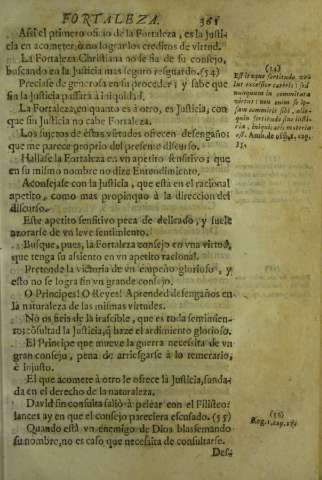 FORTALEZA. 361
Assi el primero oficio de la Fortaleza, es la Justi-
cia en acometer, ò no lograr los creditos de virtud.
La Fortaleza Christiana no se fia de su consejo,
buscando en la Justicia mas seguro resguardo. (54)
Preciase de generosa en su proceder; y sabe que
sin la Justicia passàra à iniquidad.
La Fortaleza, en quanto es à otro, es Justicia, con
que sin Justicia no cabe Fortaleza.
Los sujetos de estas virtudes ofrecen desengaños
que me parece proprio del presente discurso.
Hallase la Fortaleza en vn apetito sensitivo; que
en su mismo nombre no dize Entendimiento.
Aconsejase con la Justicia, que està en el racional
apetito, como mas propinquo à la direccion del
discurso.
Este apetito sensitivo peca de delicado, y suele
azorarse de vn leve sentimiento.
Busque, pues, la Fortaleza consejo en vna virtud,
que tenga su assiento en vn apetito racional.
Pretende la victoria de vn empeño glorioso, y
esto no se logra sin vn grande consejo.
O Principes! O Reyes! Aprended desengaños en
la naturaleza de las mismas virtudes.
No os fieis de la irascible, que es toda sentimien-
to: cõsultad la Justicia, q̃ haze el ardimiento glorioso.
El Principe que mueve la guerra necessita de vn
gran consejo, pena de arriesgarse à lo temerario,
è injusto.
El que acomete à otro le ofrece la Justicia, funda-
da en el derecho de la naturaleza.
David sin consulta saliò à pelear con el Filisteo:
lances ay en que el consejo pareciera escusado. (55)
Quando està vn enemigo de Dios blasfemando
su nombre, no es caso que necessita de consultarse.
Des-
(54)
Est itaque fortitudo
excelsior cæteris; sed
nunquam in comitata
virtus: non enim se ip-
sam committit sibi, alio-
quin fortitudo sine iusti-
tia, iniquitatis materia
est. Amb. de offic. 1. cap.
35.
(55)
Reg. 1. cap.